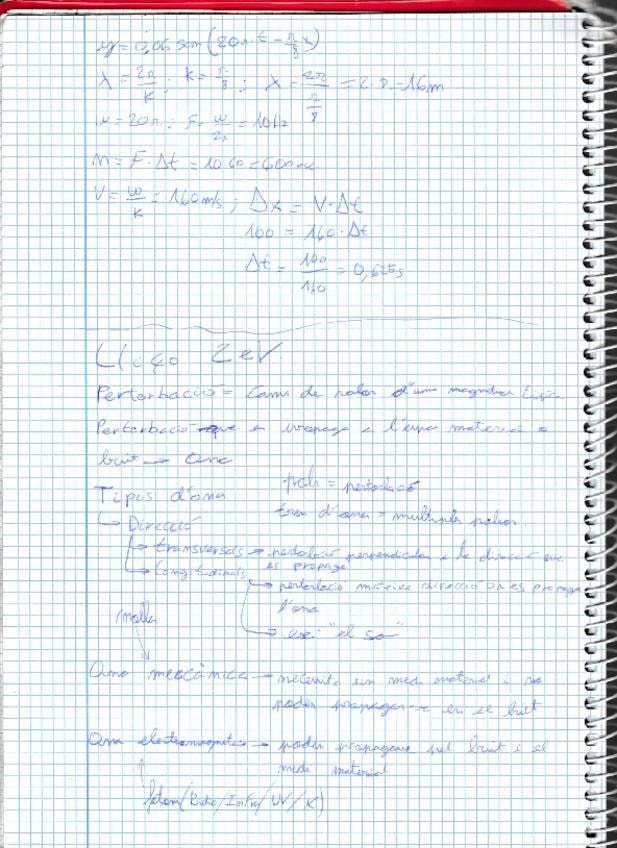 y = 0,06 sen (20π·t − π/8 x)
λ = 2π/K ; k = π/8 ; λ = 2π/(π/8) = 2·8 = 16m
ω = 20π ; F = ω/2π = 10Hz
n = F·Δt = 10·60 = 600
V = ω/K = 160m/s ; Δx = V·Δt
100 = 160·Δt
Δt = 100/160 = 0,625s
Lliçó 2eV.
Perterbació = Canvi de valor d'una magnitud física
Perterbació que es propaga a l'espai material o
buit → Ona
Tipos d'ona
pols = pertorbació
tren d'ones = multiples polsos
↳ Direcció
→ transversals → pertorbació perpendicular a la direcció que
es propaga
→ Longitudinals
→ pertorbació mateixa direcció on es propaga
l'ona
→ ex: "el so"
molla
Ona mecànica → necessita un medi material i no
poden propagar-se en el buit
Ona electromagnètica → poden propagarse pel buit i el
medi material
fotom (Radio/Infra/UV/X)